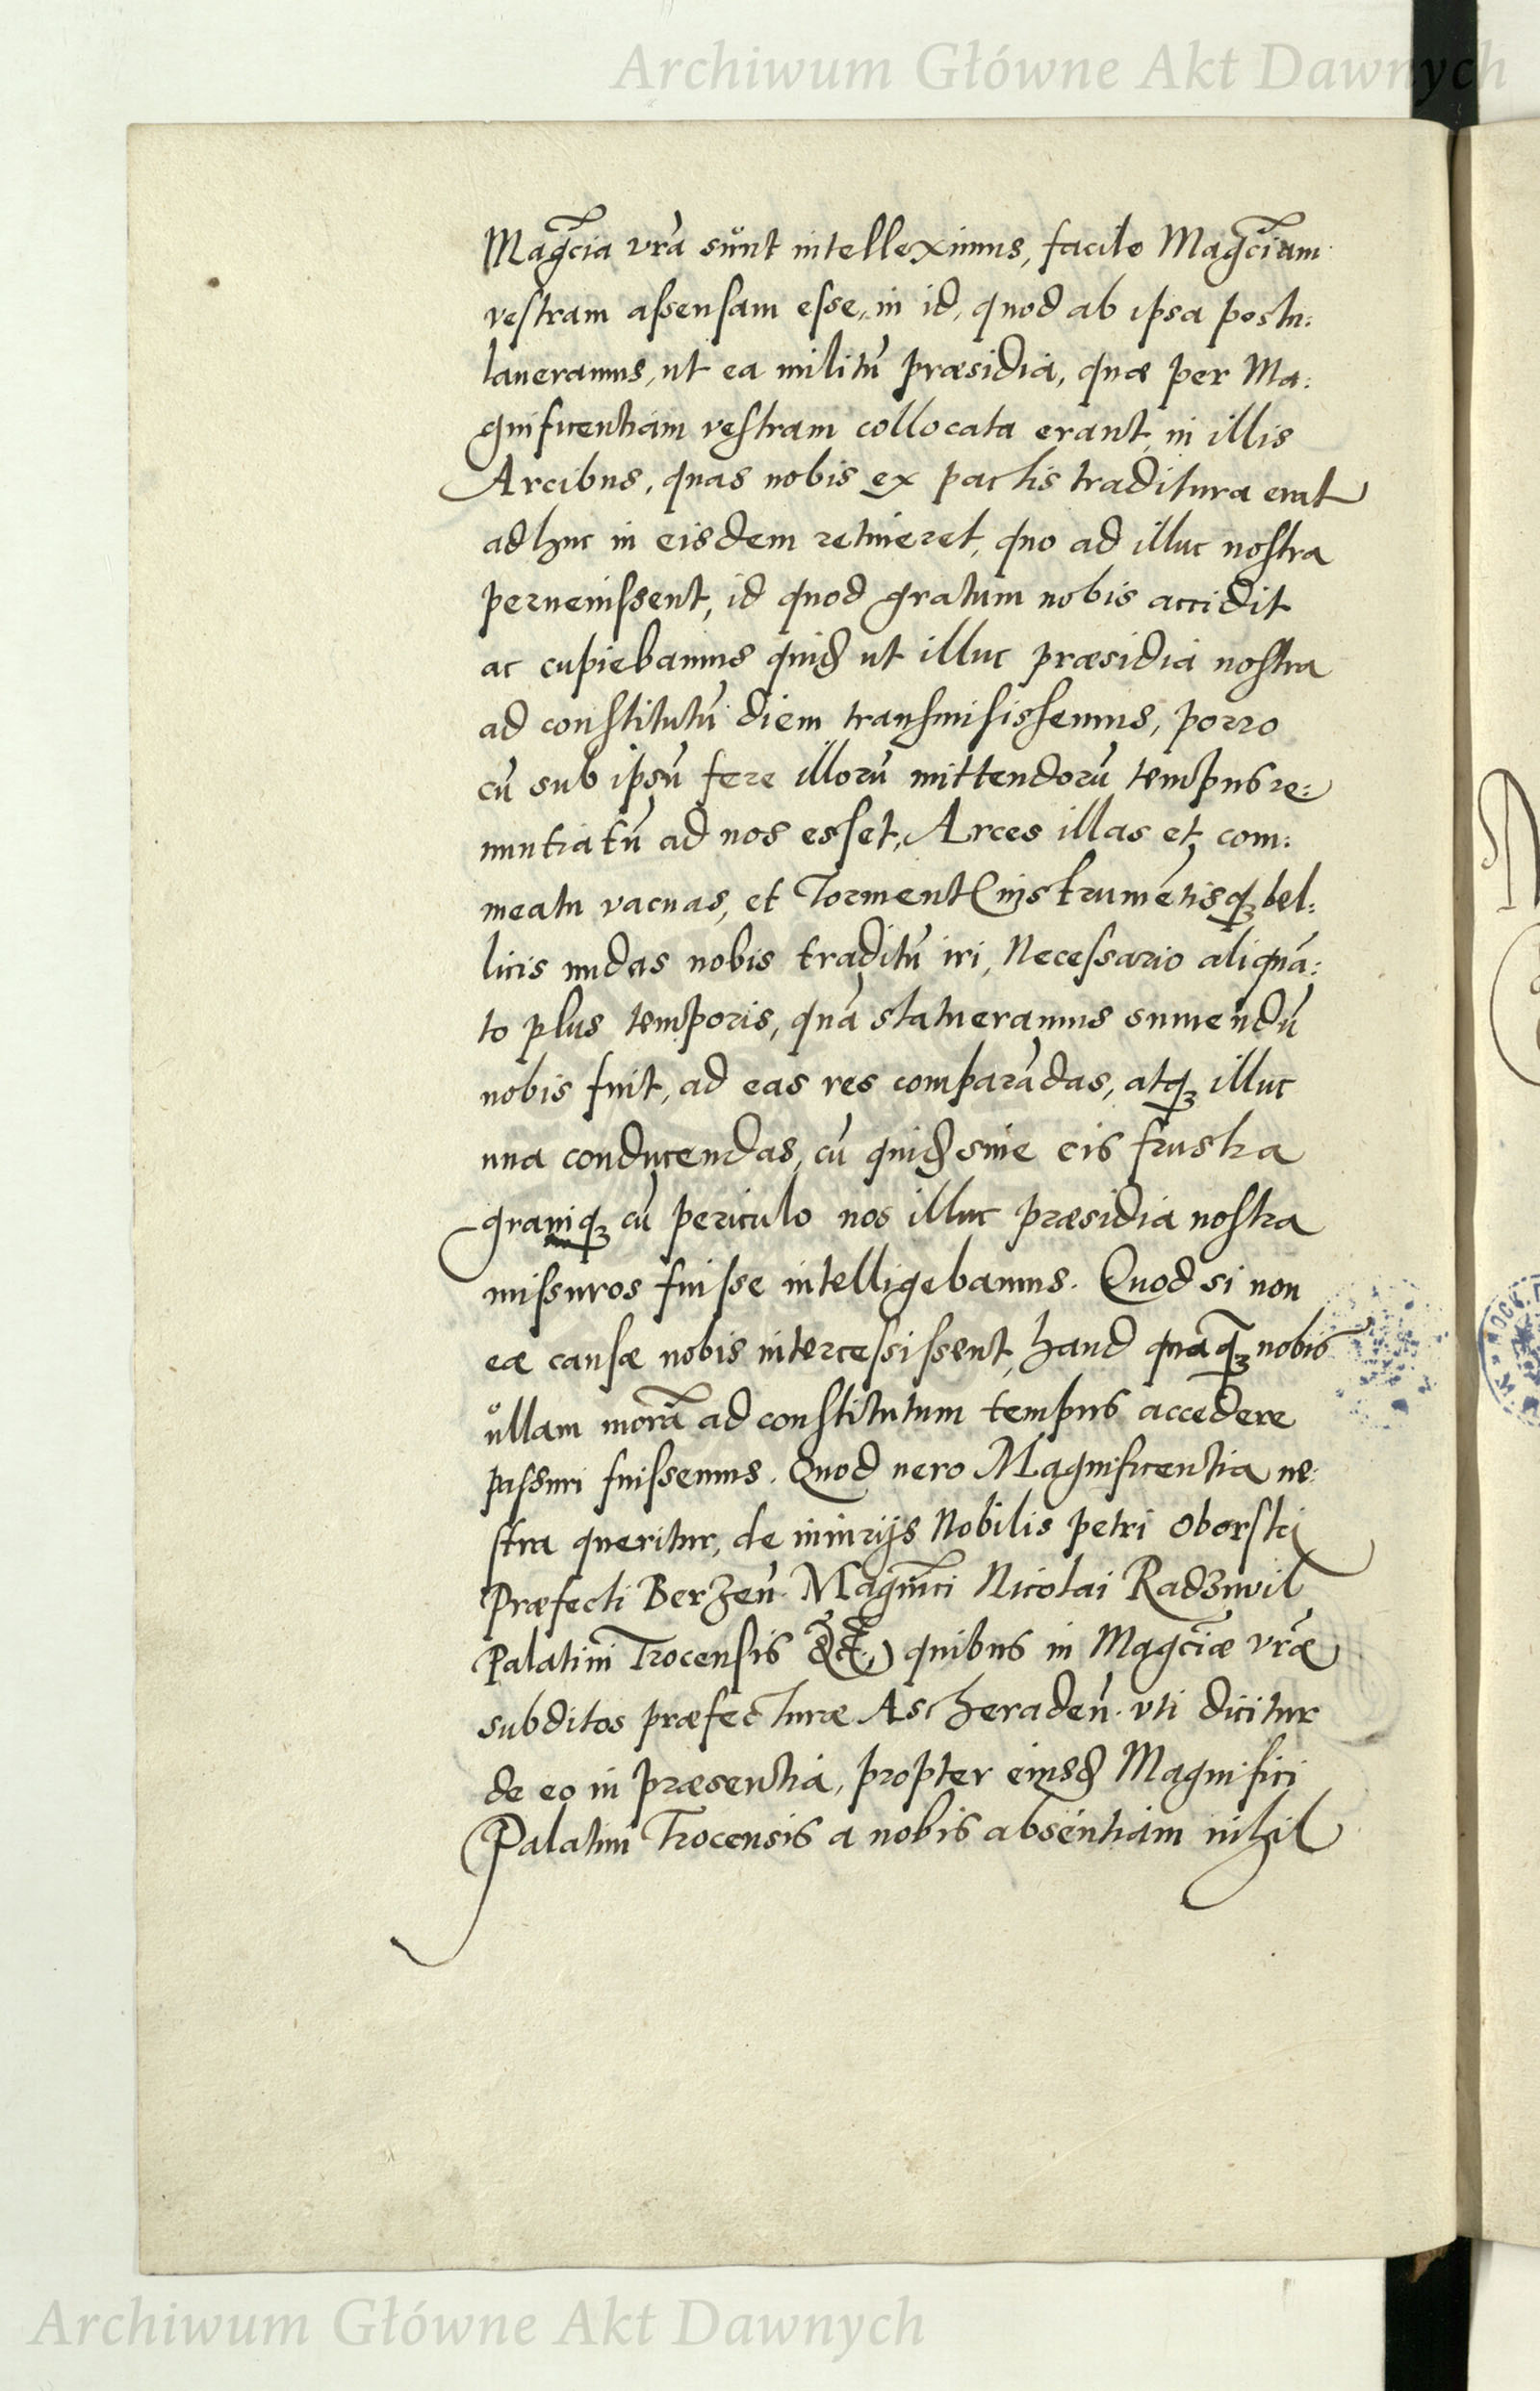 Archiwum Główne Akt Dawnych
Mag̃cia vr̃a sunt intelleximus, facile Mag̃ciam
vestram assensam esse, in id, quod ab ipsa postu:
laueramus, ut ea militũ præsidia, quæ per Ma:
gnificentiam vestram collocata erant, in illis
Arcibus, quas nobis ex pactis traditura erat
adhuc in eisdem retineret, quo ad illuc nostra
peruenissent, id quod gratum nobis accidit
ac cupiebamus quid ut illuc præsidia nostra
ad constitutũ diem transmisissemus, porro
cũ sub ipsũ fere illorũ mittendorũ tempus re:
nuntiatũ ad nos esset, Arces illas et com:
meatu vacuas, et Torment instrumẽtisqꝫ bel:
licis nudas nobis traditũ iri, Necessario aliquã:
to plus temporis, quã statueramus sumendũ
nobis fuit, ad eas res comparãdas, atqꝫ illuc
una conducendas, cũ quid sine eis frustra
grauiqꝫ cũ periculo nos illuc præsidia nostra
missuros fuisse intelligebamus. Quod si non
eæ causæ nobis intercessissent, haud quaq̃ꝫ nobis
ullam morã ad constitutum tempus accedere
passuri fuissemus. Quod uero Magnificentia ue:
stra queritur, de iniurijs Nobilis petri Oborski
Præfecti Berzeñ. Mag̃nici Nicolai Radzwil
Palatini Trocensis &c̃.) quibus in Mag̃ciæ vr̃æ
subditos præfecturæ Ascheradeñ. vti dicitur
de eo in præsentia, propter eiusd Magnifici
Palatini Trocensis a nobis absentiam nihil
Archiwum Główne Akt Dawnych